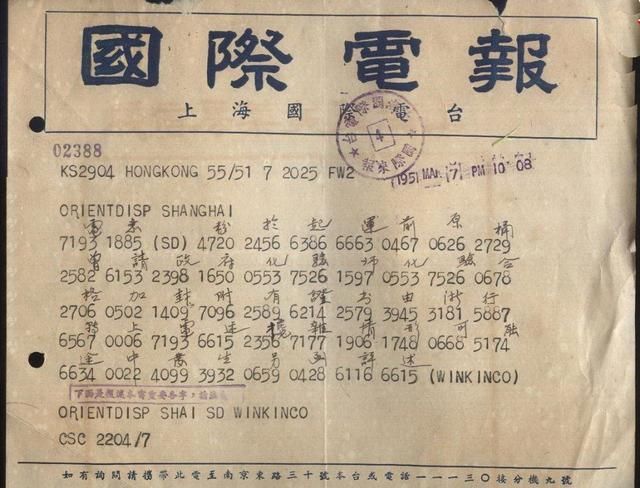 國際電報
上海國際電台
4
02388
KS2904 HONGKONG 55/51 7 2025 FW2
1951 MAR 7 PM 10 08
ORIENTDISP SHANGHAI
電悉 粉 於 起 運 前 原 桶
7193 1885 (SD) 4720 2456 6386 6663 0467 0626 2729
曾 請 政 府 化 驗 師 化 驗 合
2582 6153 2398 1650 0553 7526 1597 0553 7526 0678
格 加 有 證 書 由 行
2706 0502 1409 7096 2589 6214 2579 3945 3181 5887
上 電 述 攙 雜 情 形 可
6567 0006 7193 6615 2356 7177 1906 1748 0668 5174
途 中 發 生 另 函 詳 述
6634 0022 4099 3932 0659 0428 6116 6615 (WINKINCO)
ORIENTDISP SHAI SD WINKINCO
CSC 2204/7
如有詢問請攜帶此電至南京東路三十號本台或電話一一一三〇接分機九號